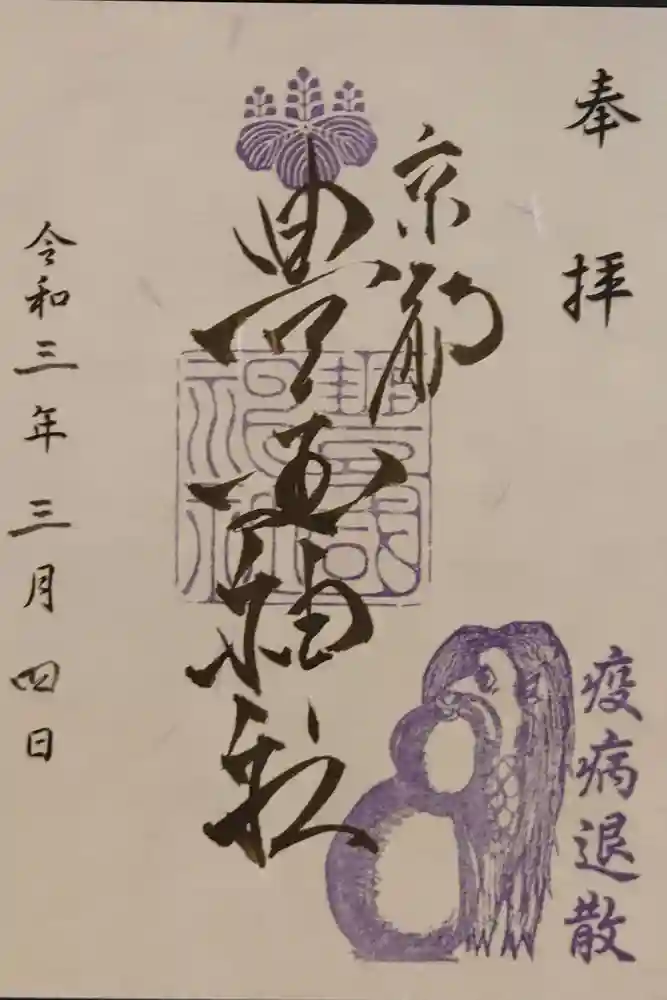 奉拝
京都
豊国神社
豊国神社
疫病退散
令和三年三月四日